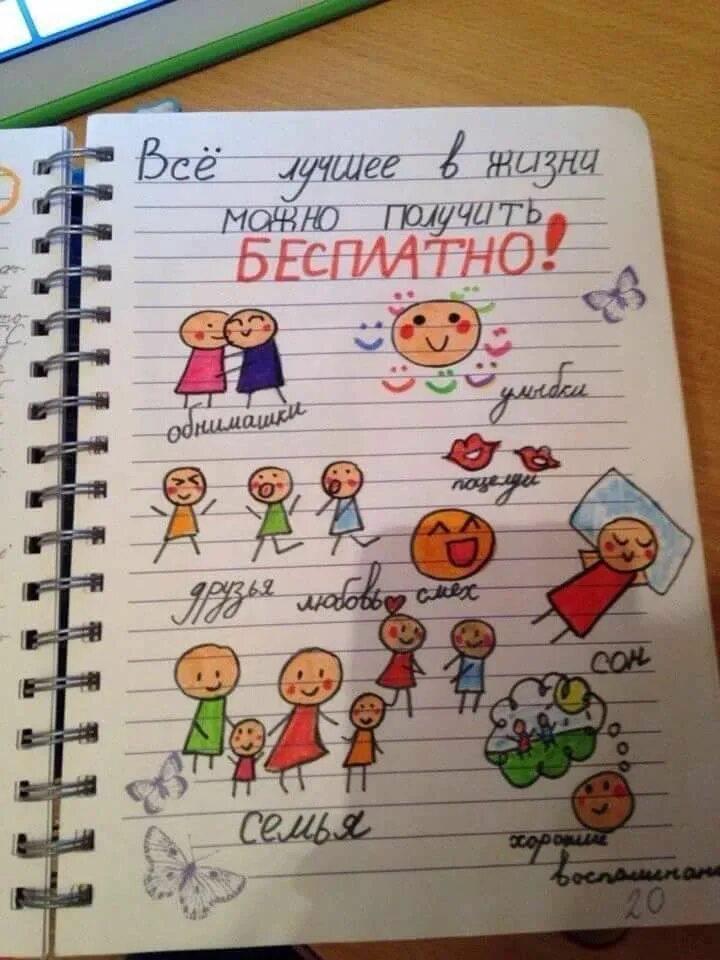 Всё лучшее в жизни
можно получить
БЕСПЛАТНО!
обнимашки
улыбки
поцелуи
друзья
любовь
смех
сон
семья
хорошие
воспоминани
20